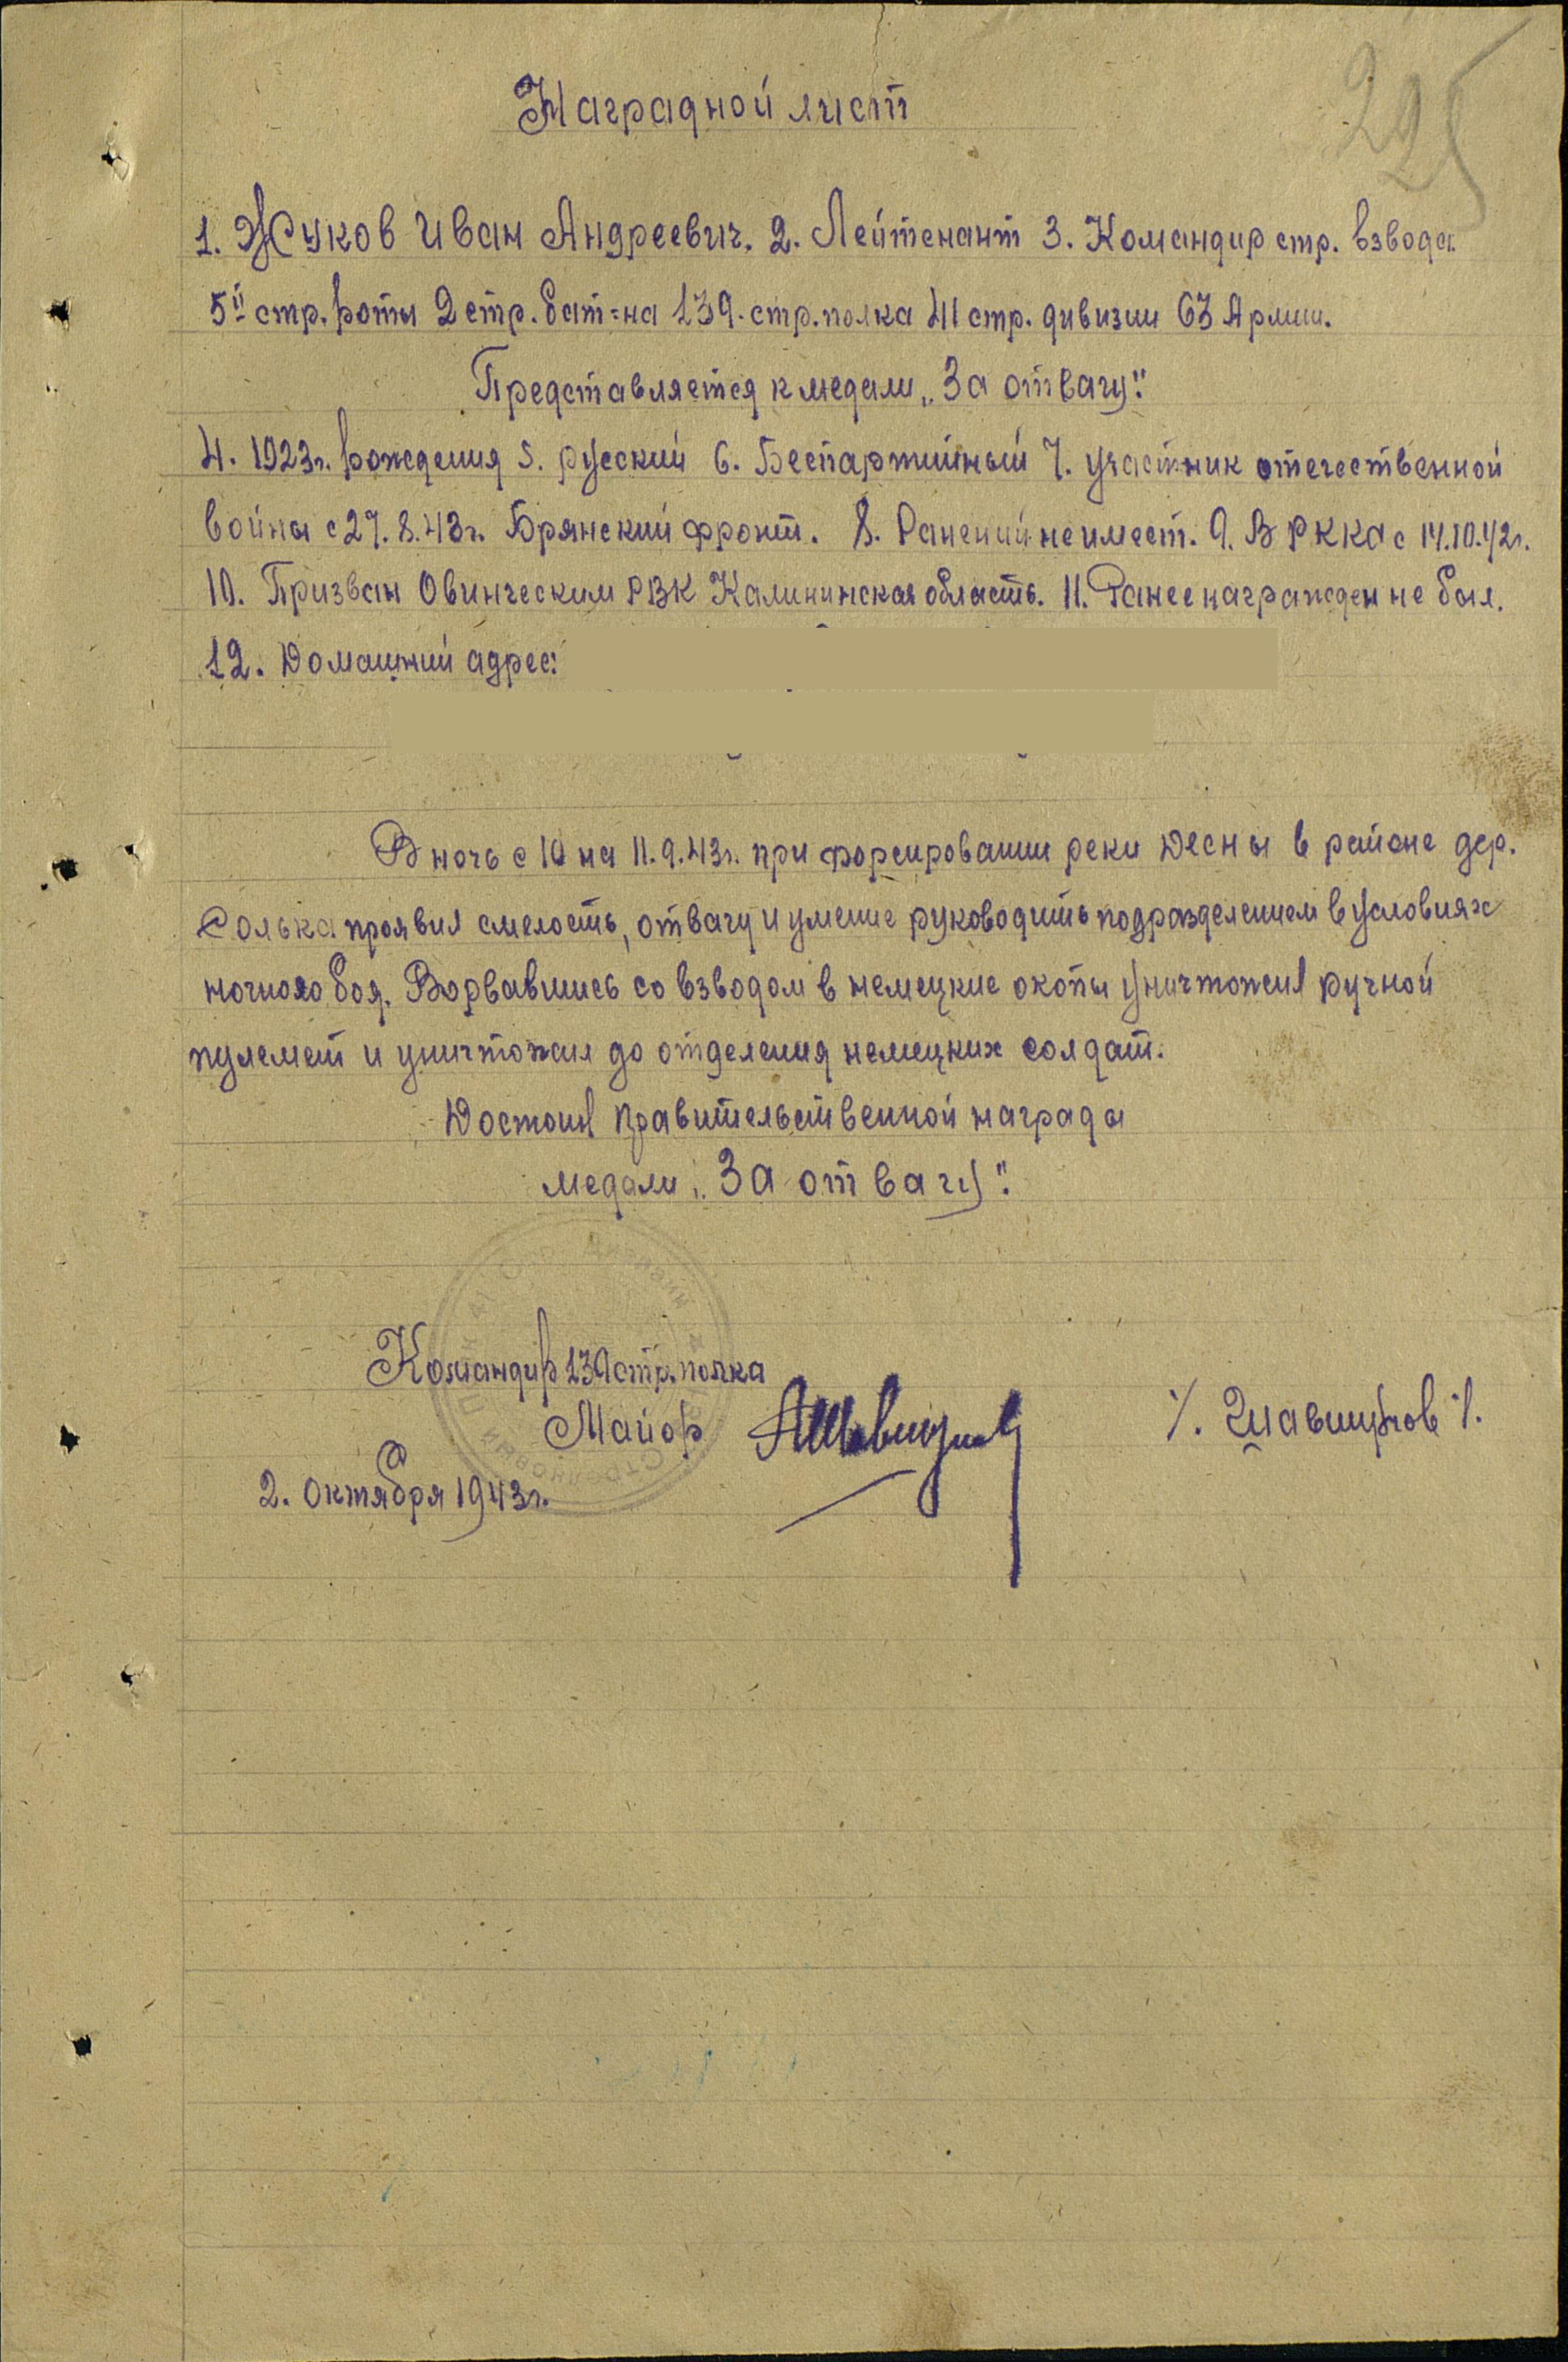 225
Наградной лист
1. Жуков Иван Андреевич. 2. Лейтенант 3. Командир стр. взвода
5й стр. роты 2 стр. бат=на 139. стр. полка 41 стр. дивизии 63 Армии.
Представляется к медали „За отвагу".
4. 1923г. рождения 5. русский 6. Беспартийный 7. участник отечественной
войны с 27.8.43г. Брянский фронт. 8. Ранений не имеет. 9. В РККА с 14.10.42г.
10. Призван Овинческим РВК Калининская область. 11. Ранее награжден не был.
12. Домашний адрес:
В ночь с 10 на 11.9.43г. при форсировании реки Десны в районе дер.
Солька проявил смелость, отвагу и умение руководить подразделением в условиях
ночного боя. Ворвавшись со взводом в немецкие окопы уничтожил ручной
пулемет и уничтожил до отделения немецких солдат.
Достоин правительственной награды
медали „За отвагу".
Командир 139 стр. полка
Майор
2. октября 1943г.